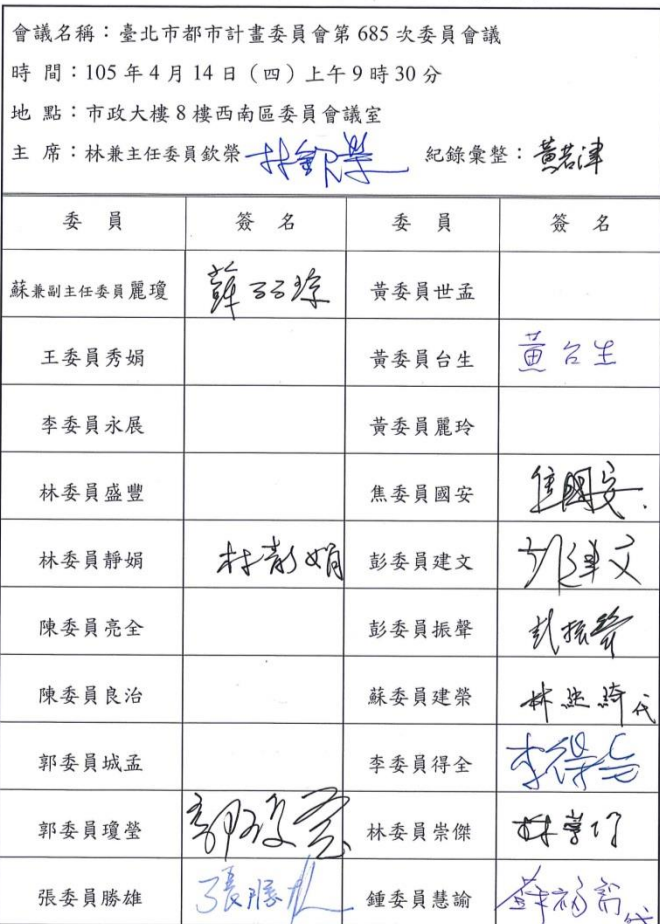 會議名稱：臺北市都市計畫委員會第 685 次委員會議
時 間：105 年 4 月 14 日（四）上午 9 時 30 分
地 點：市政大樓 8 樓西南區委員會議室
主 席：林兼主任委員欽榮 林欽榮 紀錄彙整：黃若津
委 員 簽 名 委 員 簽 名
蘇兼副主任委員麗瓊 黃委員世孟
王委員秀娟 黃委員台生 黃台生
李委員永展 黃委員麗玲
林委員盛豐 焦委員國安 焦國安
林委員靜娟 林靜娟 彭委員建文 彭建文
陳委員亮全 彭委員振聲 彭振聲
陳委員良治 蘇委員建榮 代
郭委員城孟 李委員得全 李得全
郭委員瓊瑩 郭瓊瑩 林委員崇傑 林崇傑
張委員勝雄 張勝雄 鍾委員慧諭 代